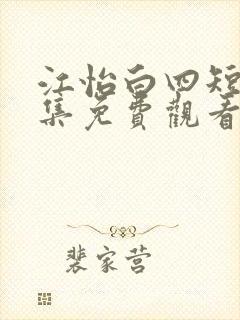 江怡白四短
集免費觀看
裴家营